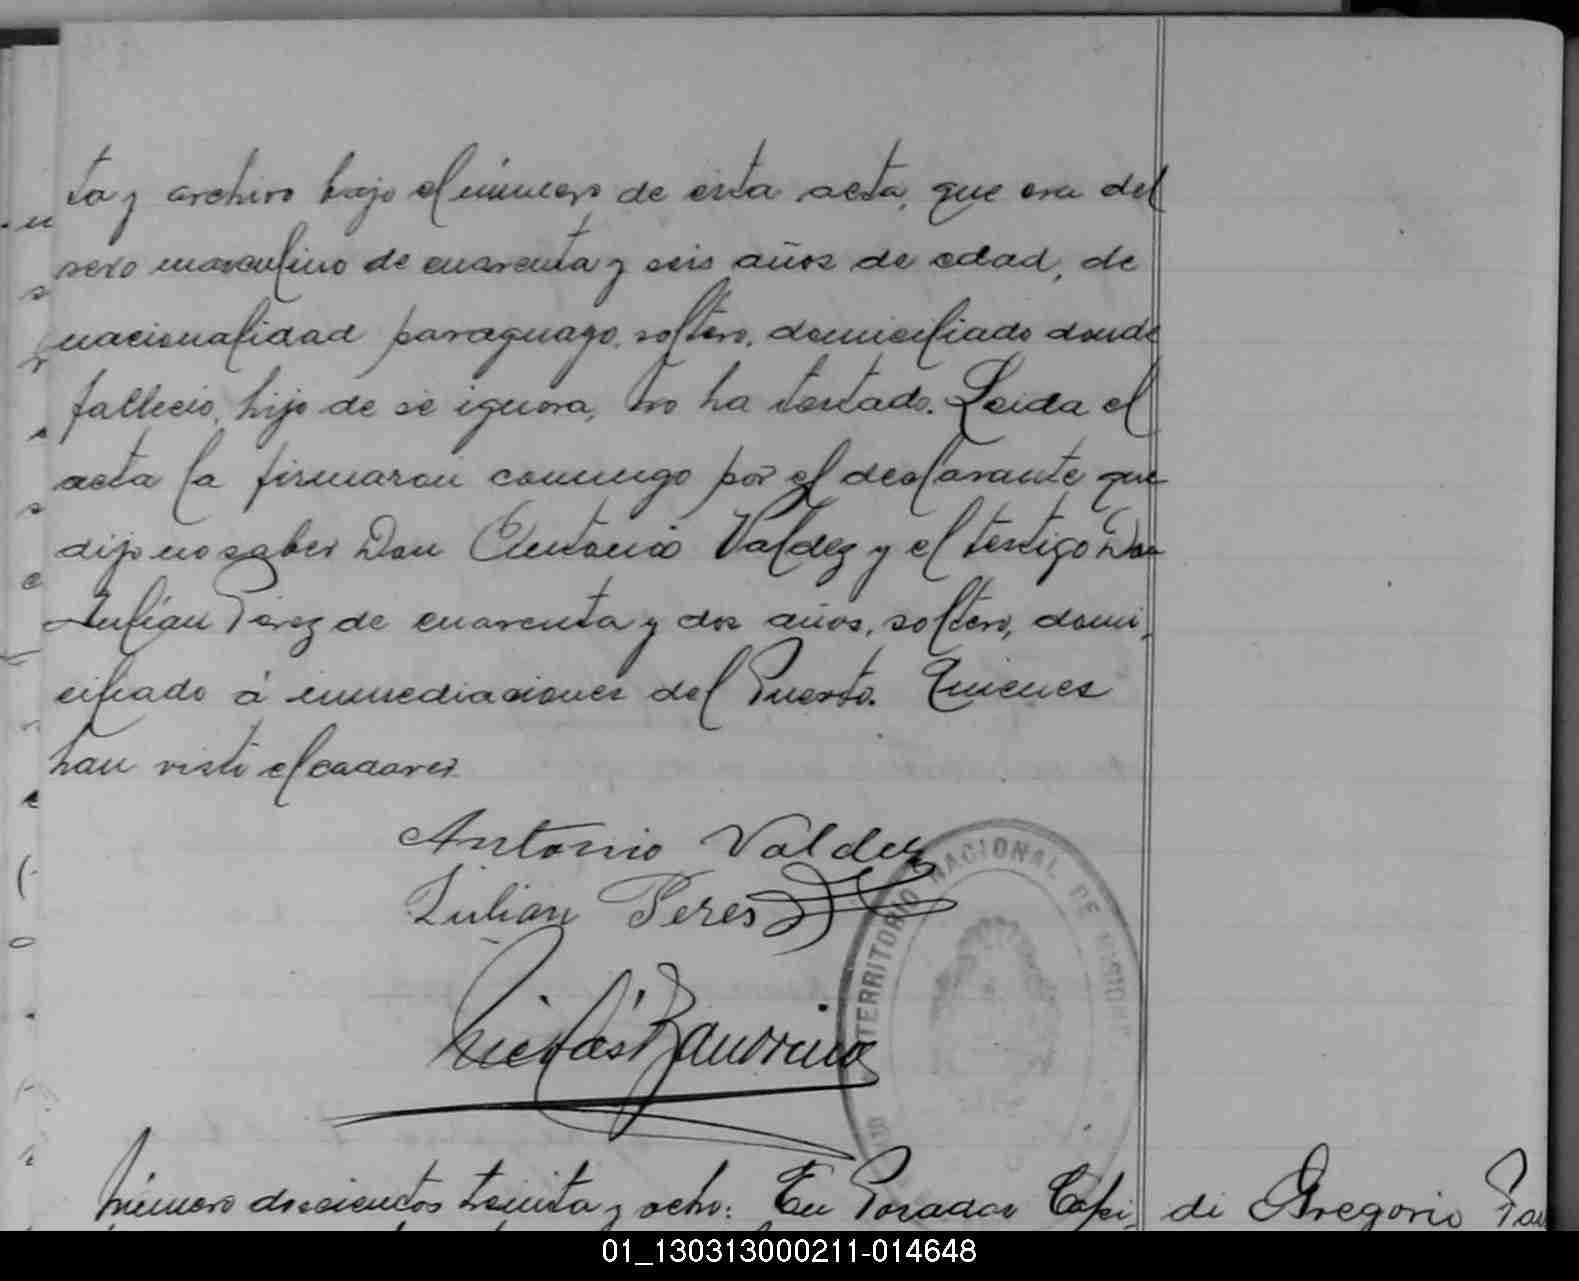 ta y archivo bajo el número de esta acta, que era del
sexo masculino de cuarenta y seis años de edad, de
nacionalidad paraguayo, soltero, domiciliado donde
fallecio, hijo de se ignora, No ha testado. Leida el
acta la firmaron conmigo por el declarante que
dijo no saber Don Antonio Valdez y el testigo Don
Julián Pérez de cuarenta y dos años, soltero, domi,
ciliado á inmediaciones del Puerto. Quienes
han visto el cadaver.
Antonio Valdez
Julian Peres
TERRITORIO NACIONAL DE MISIONES
Nicolás
Número doscientos treinta y ocho: En Posadas Capi, de Gregorio
01_130313000211-014648